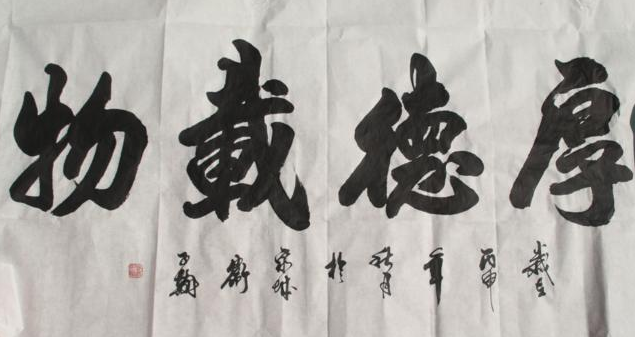 厚德載物
歲在丙申年秋月於京城